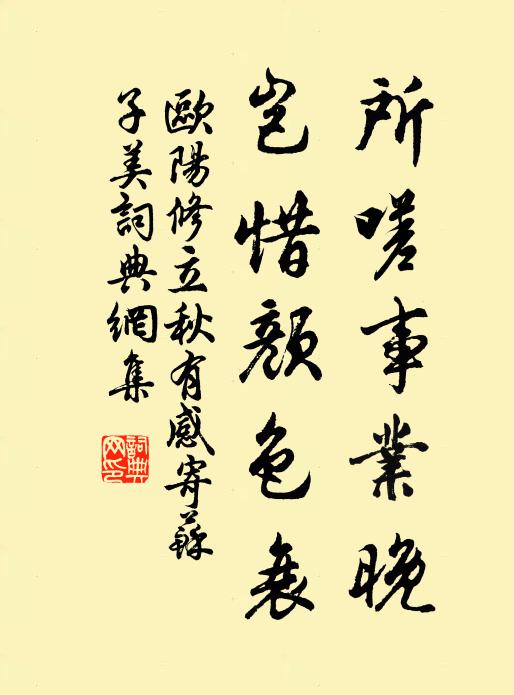 所嗟事業晚
豈惜顏色衰
歐陽修立秋有感寄蘇
子美詞典網集
詞典
网印